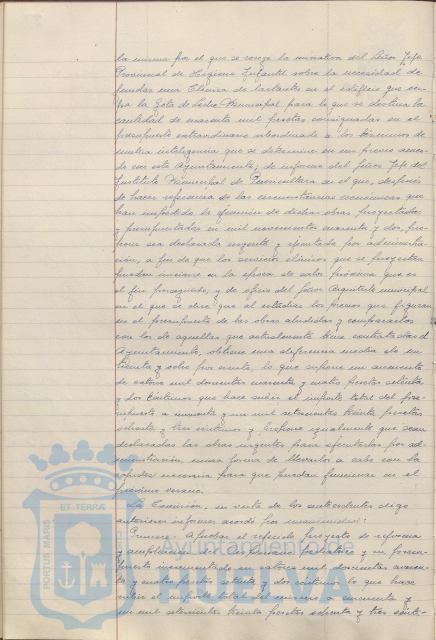 la misma por el que se recoge la iniciativa del Señor Jefe
Provincial de Higiene Infantil sobre la necesidad de
fundar una Clínica de lactantes en el edificio que ocu-
pa la Gota de Leche Municipal para lo que se destina la
cantidad de cuarenta mil pesetas consignadas en el
presupuesto extraordinario subordinado a los términos de
mutua inteligencia que se determine en un previo acuer-
do con este Ayuntamiento; de informe del Señor Jefe del
Instituto Municipal de Puericultura en el que, después
de hacer referencia de las circunstancias económicas que
han impedido la ejecución de dichas obras proyectadas
y presupuestadas en mil novecientos cuarenta y dos, pro-
pone sea declarada urgente y ejecutada por administra-
ción, a fin de que los servicios clínicos que se proyectan
puedan iniciarse en la época de calor próxima que es
el fin perseguido, y de oficio del Señor Arquitecto municipal
en el que se dice que al estudiar los precios que figuran
en el presupuesto de las obras aludidas y compararlos
con los de aquellas que actualmente tiene contratadas el
Ayuntamiento, obtiene una diferencia media de un
treinta y ocho por ciento, lo que supone un aumento
de catorce mil doscientas cuarenta y cuatro pesetas setenta
y dos céntimos que hace subir el importe total del pre-
supuesto a cincuenta y un mil setecientas treinta pesetas
ochenta y tres céntimos y propone igualmente que sean
declaradas las obras urgentes para ejecutarlas por ad-
ministración, única forma de llevarlas a cabo con la
rapidez necesaria para que puedan funcionar en el
próximo verano.
La Comisión, en vista de los antecedentes digo
anteriores informes acordó por unanimidad:
Primero: Aprobar el referido proyecto de reforma
y ampliación
y su presu-
puesto incrementado en catorce mil doscientas cuaren-
ta y cuatro pesetas setenta y dos céntimos lo que hace
subir el importe total del mismo a cincuenta y
un mil setecientas treinta pesetas ochenta y tres cénti-
Ayuntamiento de
PORTUS MARIS
ET TERRÆ